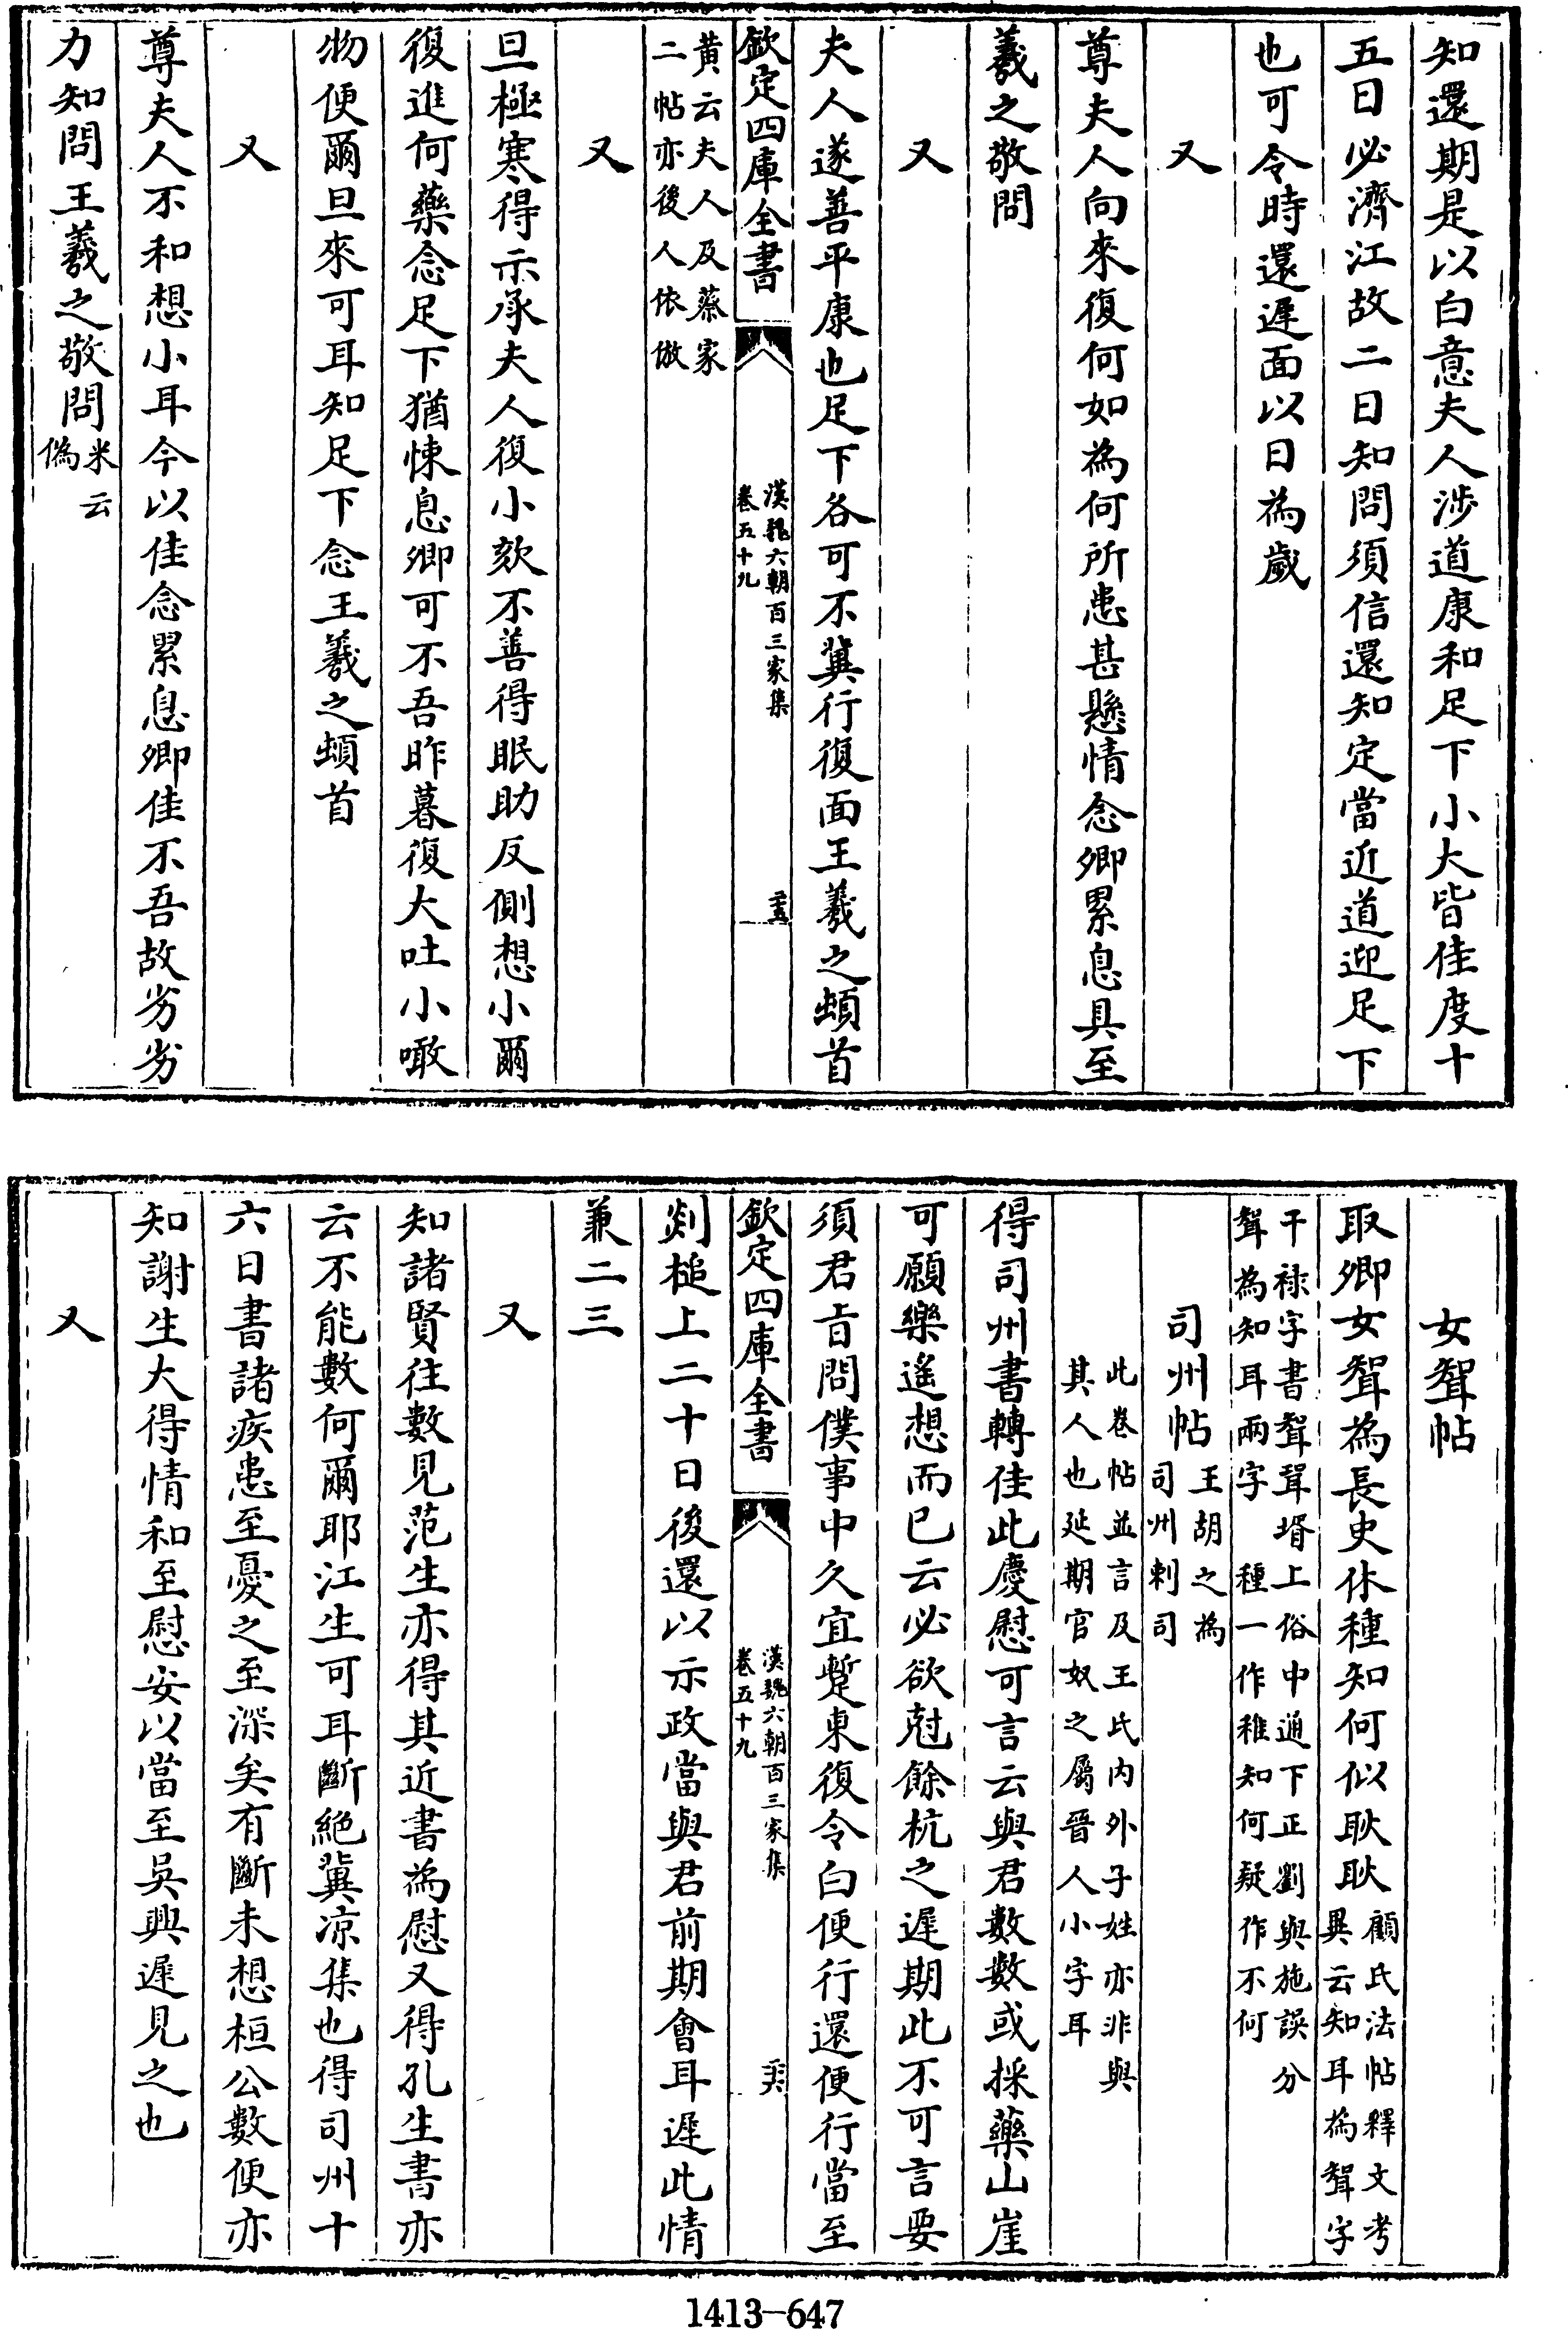 知還期是以白意夫人涉道康和足下小大皆佳度十
五日必濟江故二日知問須信還知定當近道迎足下
也可令時還遲面以日為歲
又
尊夫人向來復何如為何所患甚懸情念卿累息具至
羲之敬問
又
夫人遂善平康也足下各可不冀行復面王羲之頓首
欽定四庫全書
漢魏六朝百三家集
卷五十九
黄云夫人及蔡家
二帖亦後人依倣
又
旦極寒得示承夫人復小欬不善得眠助反側想小爾
復進何藥念足下猶悚息卿可不吾昨暮復大吐小噉
物便爾旦來可耳知足下念王羲之頓首
又
尊夫人不和想小耳今以佳念累息卿佳不吾故劣劣
力知問王羲之敬問
米云
偽
女聟帖
取卿女聟為長史休種知何似耿耿
顧氏法帖釋文考
異云知耳為聟字
干祿字書聟壻上俗中通下正劉與施誤分
聟為知耳兩字 種一作稚知何疑作不何
司州帖
王胡之為
司州刺司
此卷帖並言及王氏内外子姓亦非與
其人也延期官奴之屬晉人小字耳
得司州書轉佳此慶慰可言云與君數數或採藥山崖
可願樂遙想而已云必欲尅餘杭之遲期此不可言要
須君旨問僕事中久宜蹔東復令白便行還便行當至
欽定四庫全書
漢魏六朝百三家集
卷五十九
剡槌上二十日後還以示政當與君前期會耳遲此情
兼二三
又
知諸賢往數見范生亦得其近書為慰又得孔生書亦
云不能數何爾耶江生可耳斷絕冀凉集也得司州十
六日書諸疾患至憂之至深矣有斷未想桓公數便亦
知謝生大得情和至慰安以當至吳興遲見之也
又
1413-647